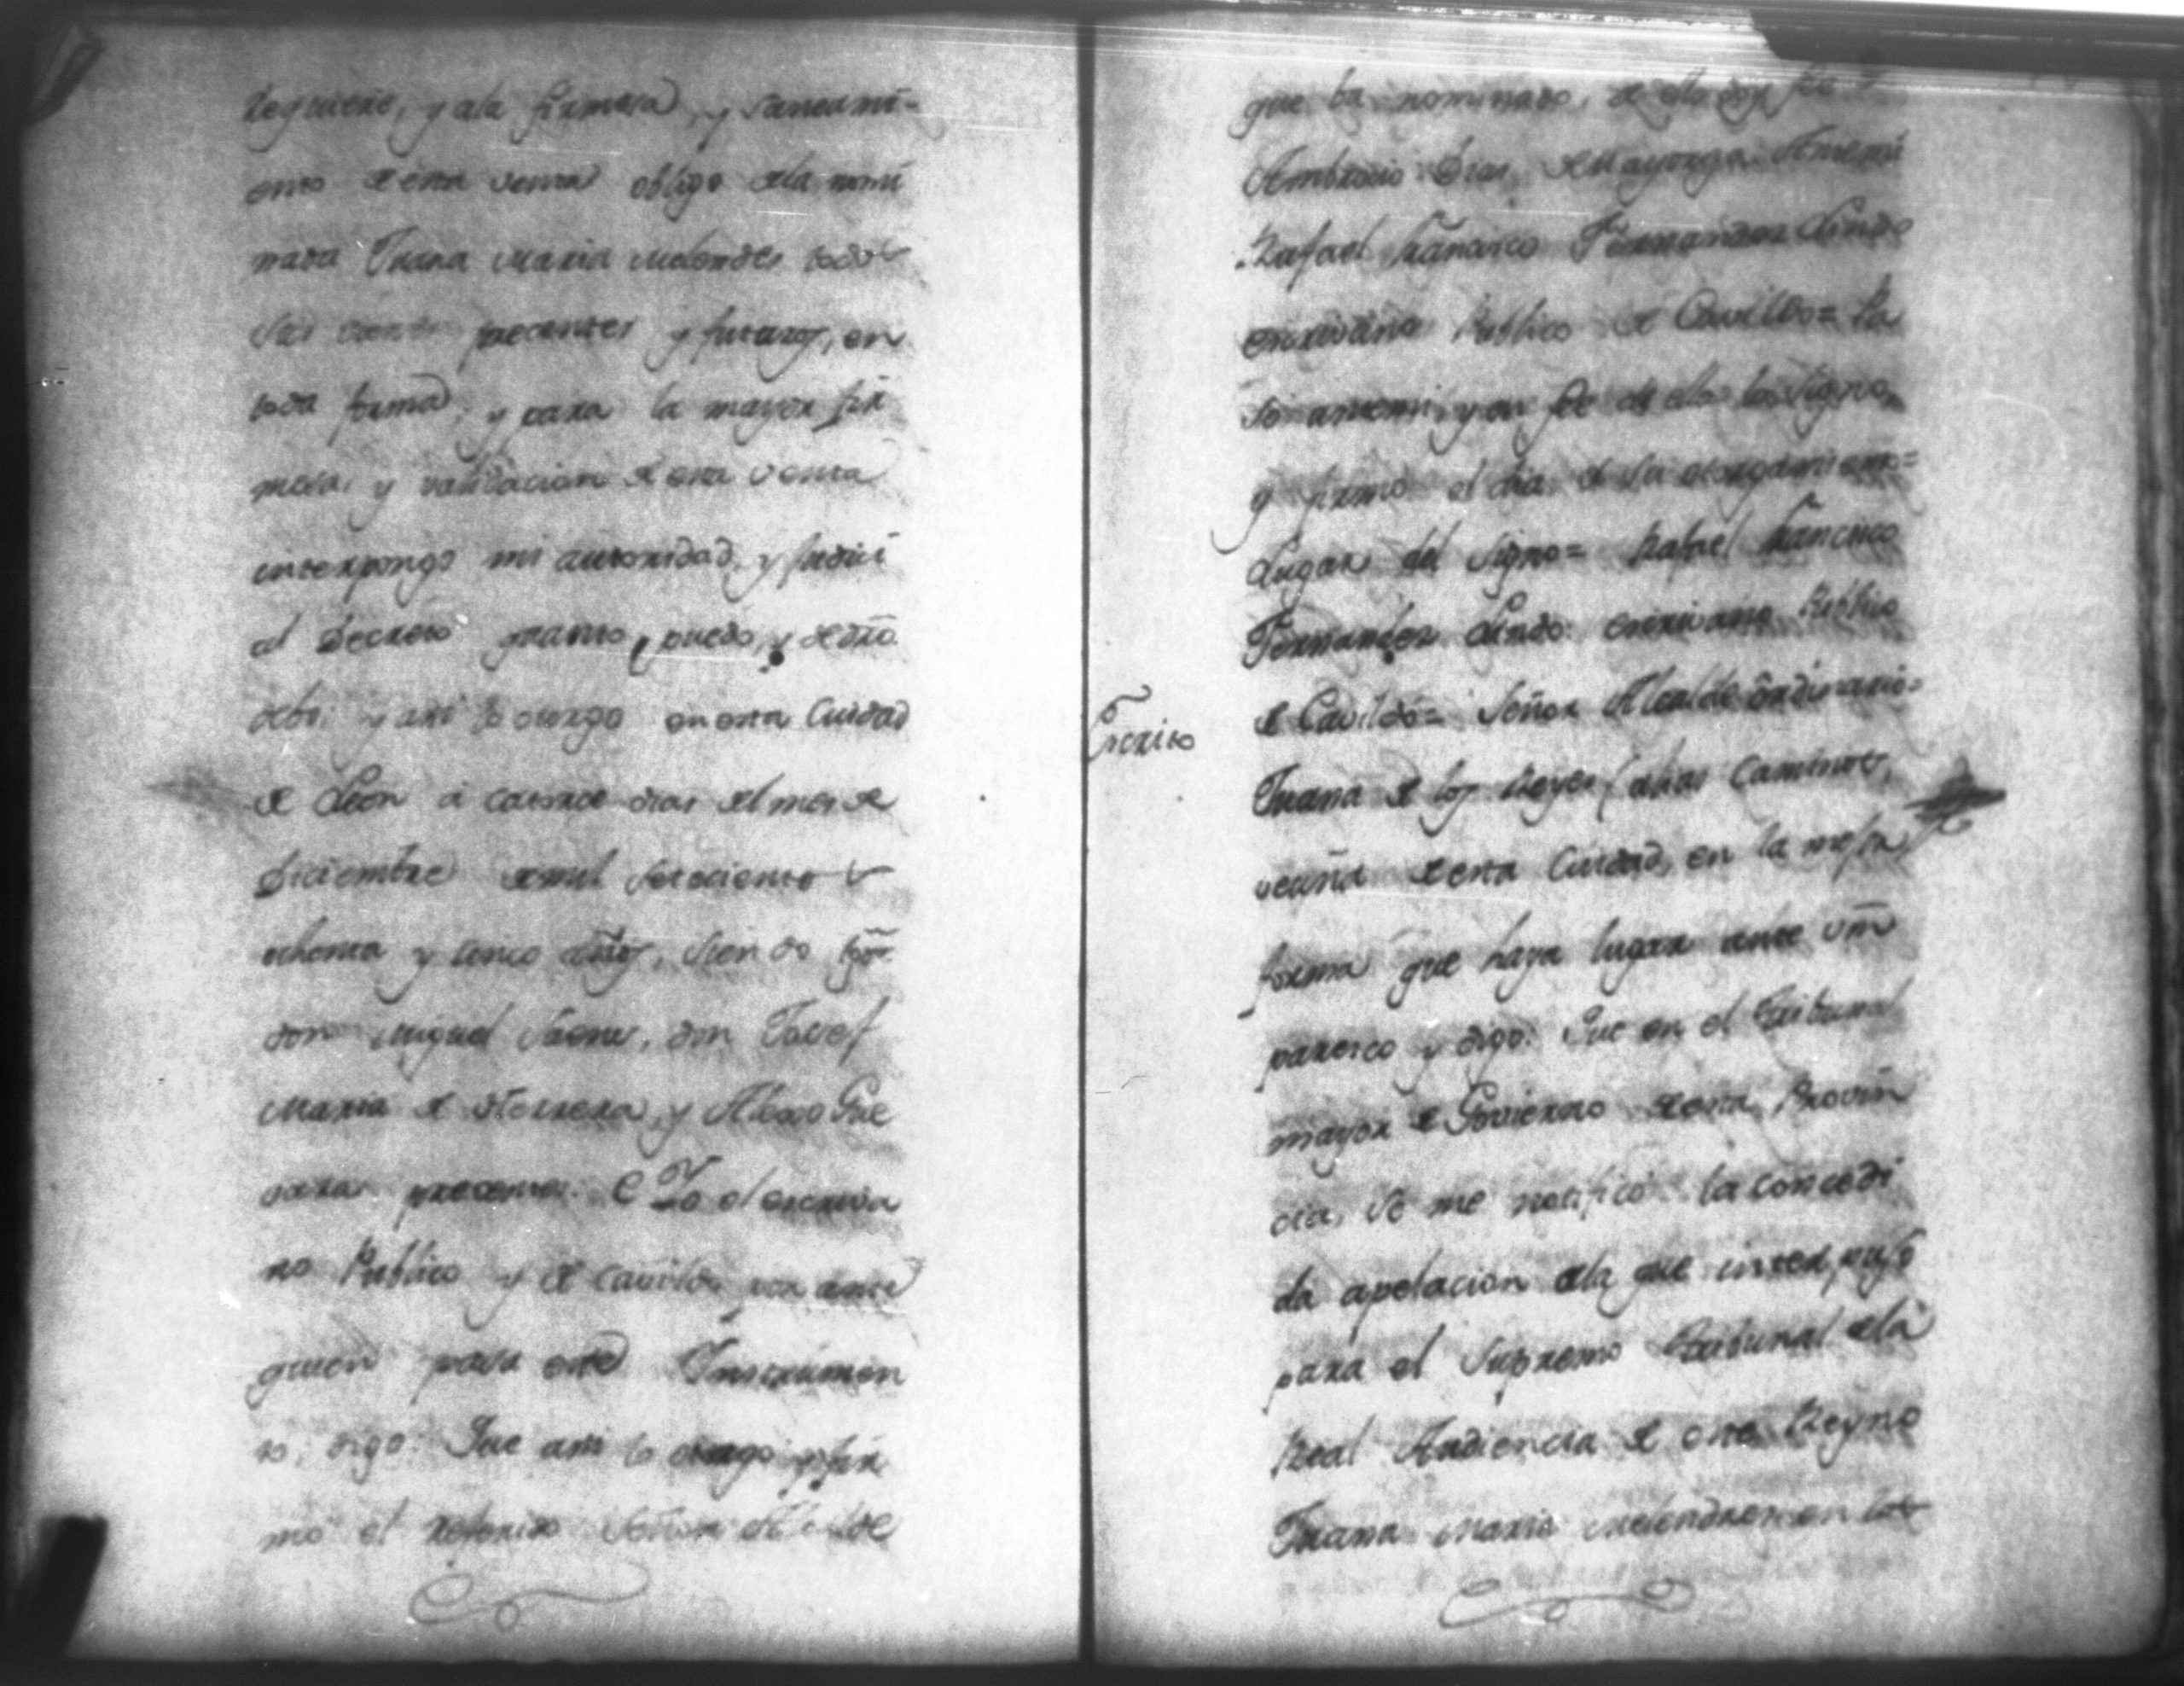 requiere, y ala firmesa, y saneami-
ento de esta venta obligo dela nomi
nada Juana Maria Melendes todos
sus vienes precentes y futuros, en
toda forma, y para la mayor fir
mesa, y validacion de esta venta
interpongo mi autoridad, y judici
al Decreto quanto puedo, y de dr̃o
debo; y asi lo otorgo en esta Ciudad
de Leon á catorce dias del mes de
Diciembre de mil setecientos
ochenta y cinco años, siendo tg̃os
don Miguel Saens, don Josef
Maria de Herrera, y Alexo Gue
vara precentes. E Yo el escriva
no Publico y de Cavildo, por ante
quien pasa este Instrumen
to, digo: Que asi lo otorgo y fir
mó el referido Señor Alcalde
que ba nominado, de ello doy feé
Ambrocio Dias de Mayorga Antemi
Rafael Francisco Fernandez Lindo
escrivano Publico de Cavildo= Pa
só antemi, y en fee de ello lo signo,
y firmo el dia de su otorgamiento=
Lugar del Signo= Rafael Francisco
Fernandez Lindo: escrivano Publico
Escrito
de Cavildo= Señor Alcalde Ordinario=
Juana de los Reyes (alias Caminos,
vecina de esta Ciudad, en la mejor
forma que haya lugar ante Vm̃
paresco y digo: Que en el Tribunal
mayor de Govierno de esta Provin
cia, se me notificó la concedi
da apelacion dela que interpuso
para el Supremo Tribunal dela
Real Audiencia de este Reyno
Juana Maria Melendres en los